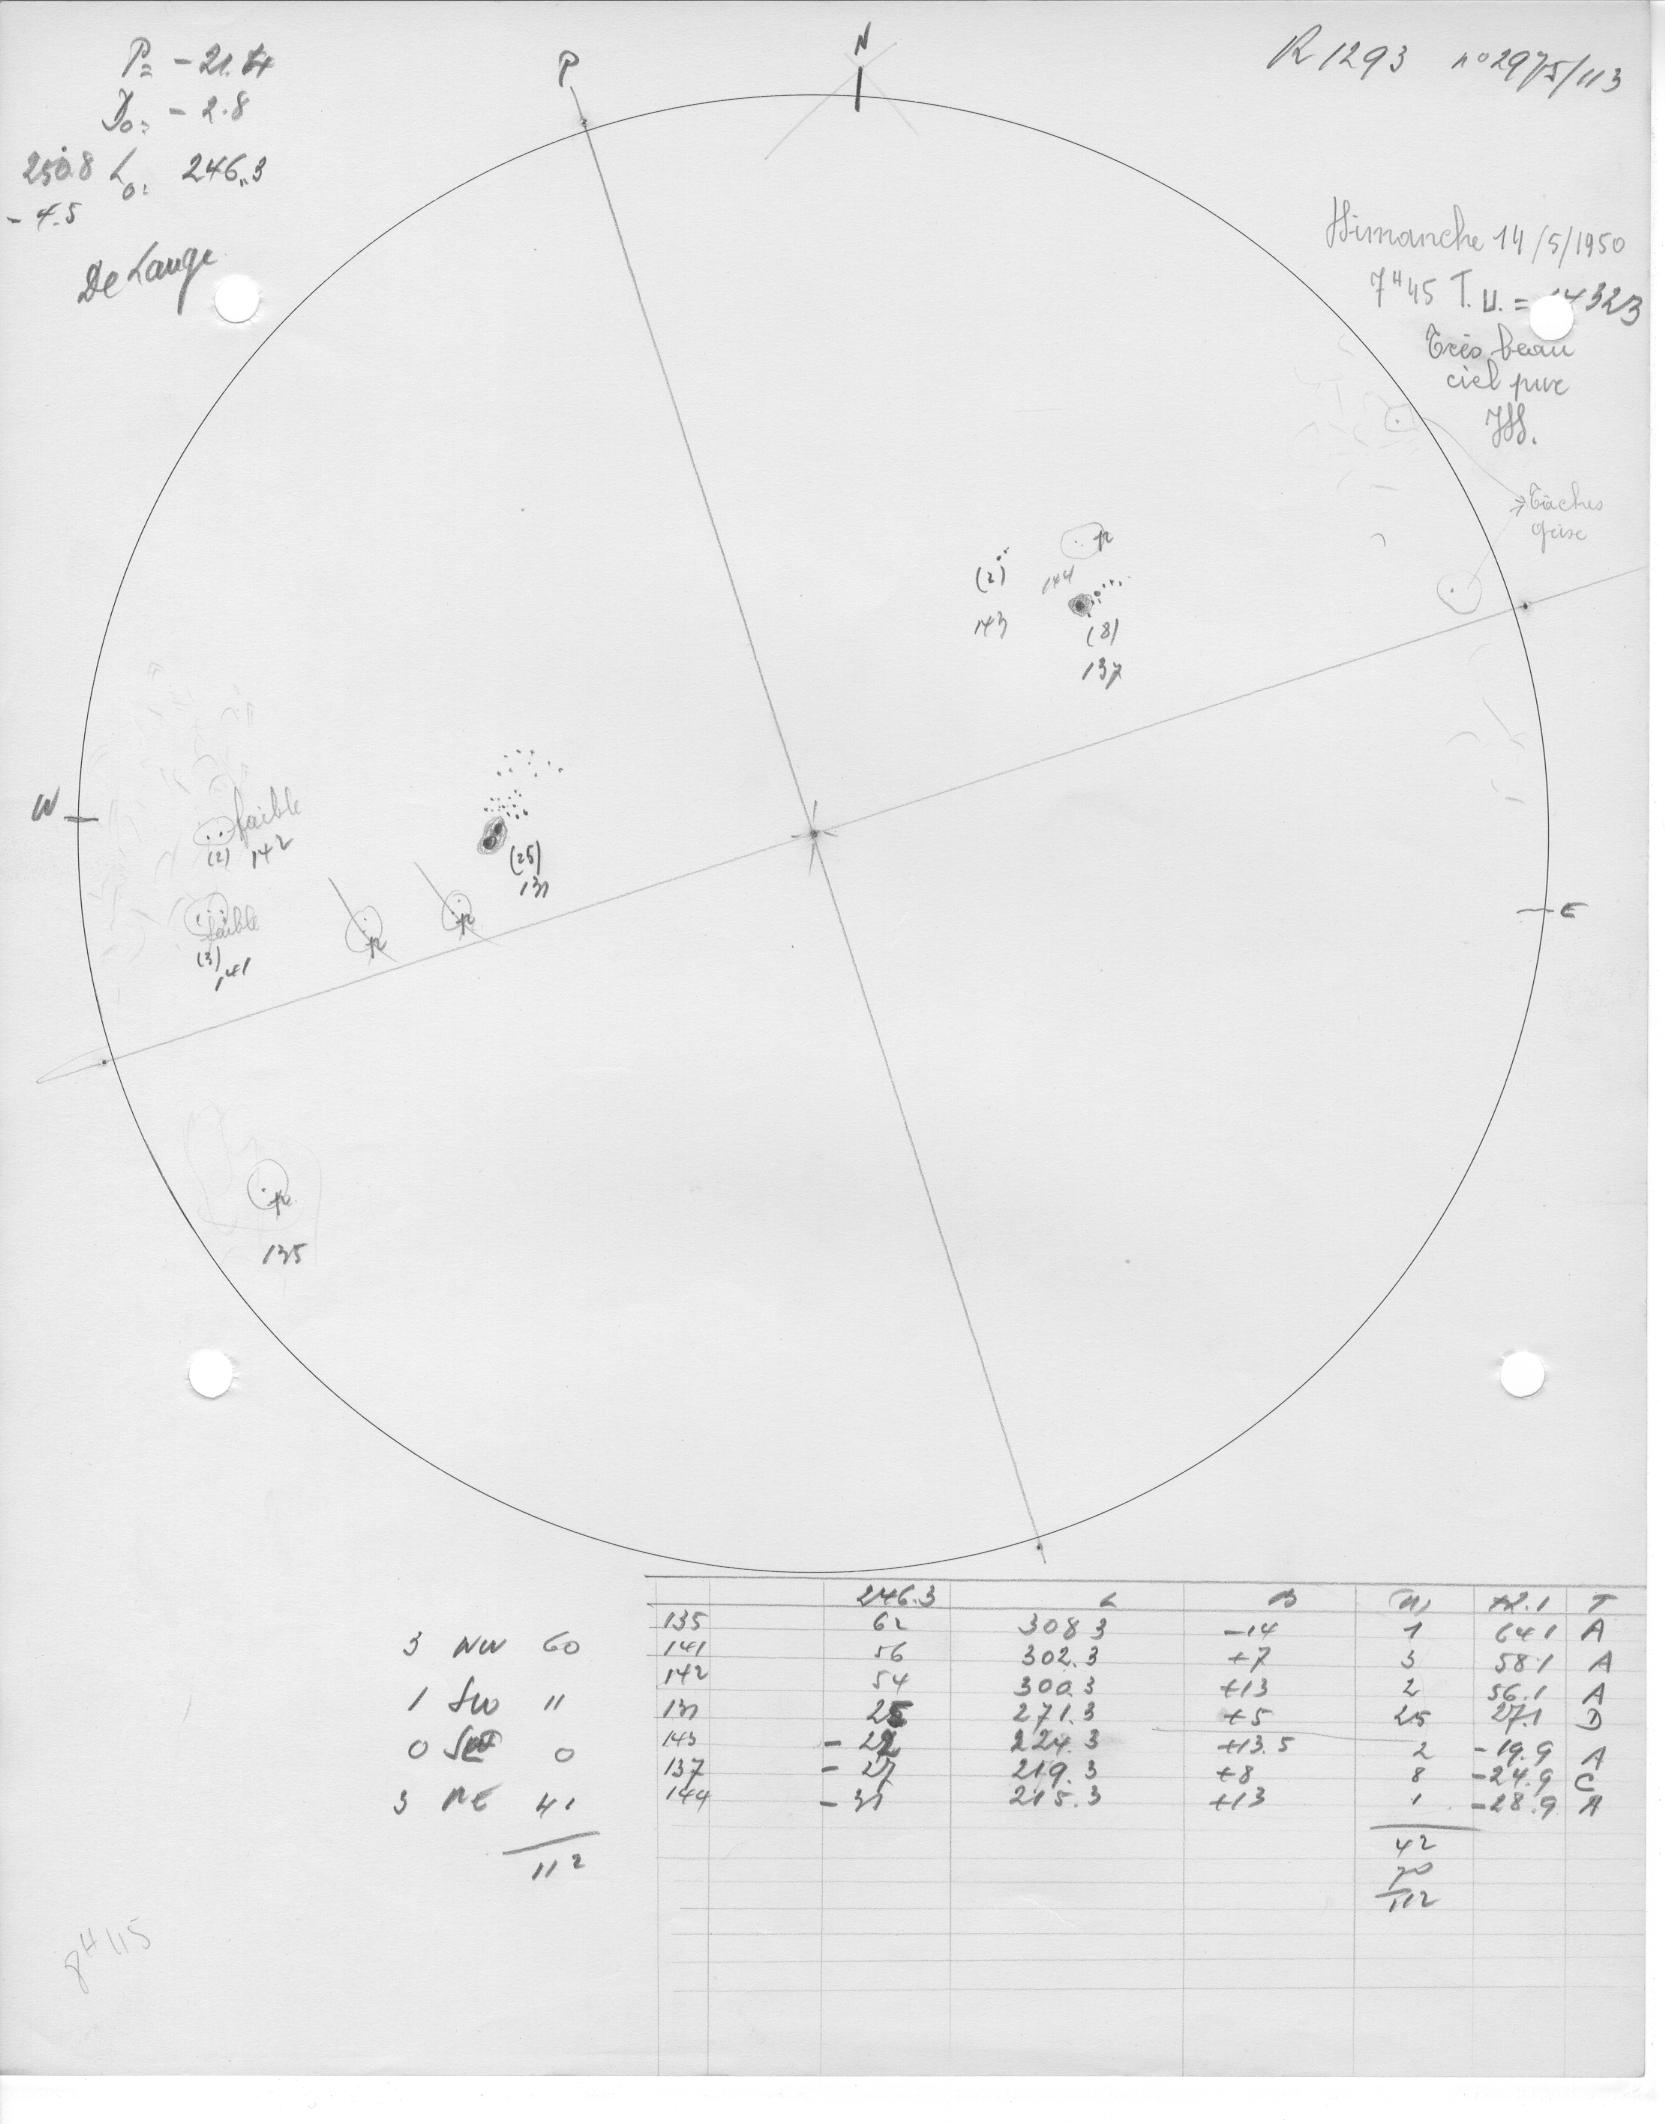 P= -21.4
D0= -2.8
250.8 L0= 246.3
-4.5
De Lange
P
N
R 1293 n° 2975/113
Dimanche 14/5/1950
7H45 T.U. =
Très beau
ciel pur
Tâches
grise
(2)
143
144
p
(8)
137
W
E
faible
(2) 142
faible
(3)
141
(25)
131
p
p
p
135
246.3 L B (n) +2.1 T
135 62 308.3 -14 1 64.1 A
141 56 302.3 +7 3 58.1 A
142 54 300.3 +13 2 56.1 A
131 25 271.3 +5 25 27.1 D
143 -22 224.3 +13.5 2 -19.9 A
137 -27 219.3 +8 8 -24.9 C
144 -31 215.3 +13 1 -28.9 A
42
70
112
3 NW 60
1 SW "
0 SE 0
3 NE 41
112
8H15